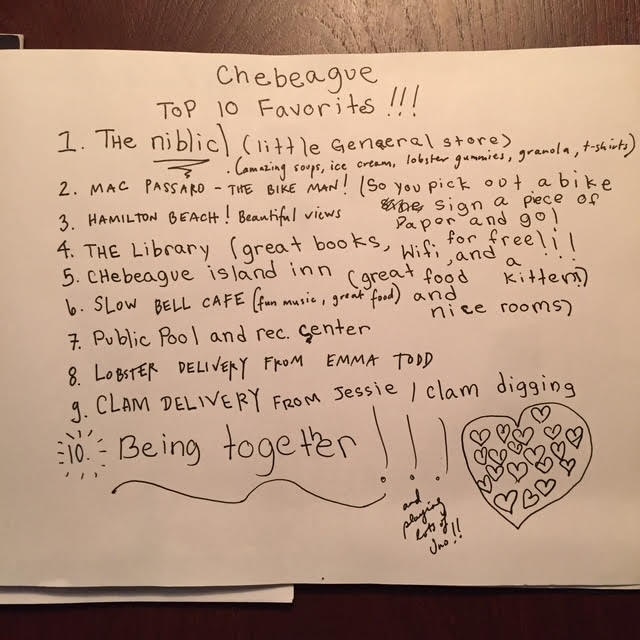 Chebeague
TOP 10 Favorites !!!
1. THE niblic (little General store)
(amazing soups, ice cream, lobster gummies, granola, t-shirts)
2. MAC PASSARO - THE BIKE MAN! (So you pick out a bike
sign a piece of
Paper and go!
3. HAMILTON BEACH! Beautiful views
4. THE Library (great books, Wifi for free!!!
, and a
kitten)
5. CHebeague island inn (great food
and
nice rooms)
6. SLOW BELL CAFE (fun music, great food)
7. Public Pool and rec. center
8. LOBSTER DELIVERY FROM EMMA TODD
9. CLAM DELIVERY FROM Jessie / clam digging
10. Being together!!!
and
playing
lots of
Uno!!